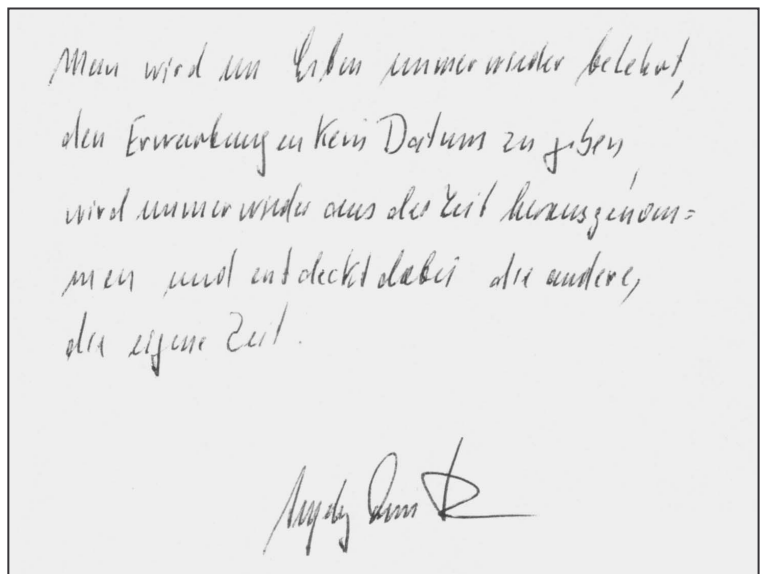 Man wird im Leben immer wieder belehrt,
den Erwartungen kein Datum zu geben,
wird immer wieder aus der Zeit herausgenom=
men und entdeckt dabei die andere,
die eigene Zeit.